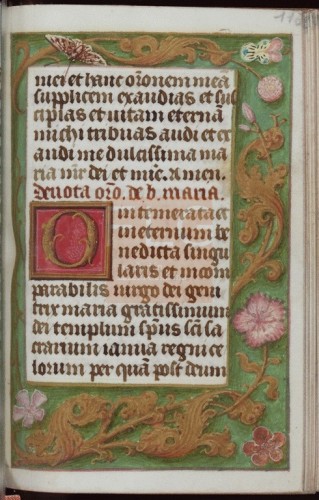 met et hanc orõnem meã
supplicem exaudias et sus
cipias et uitam eternã
michi tribuas audi et ex
audi me dulcissima ma
ria mr̃ dei et mie. Amen.
Deuota orõ. de b. maria.
O intemerata et
in eternum be
nedicta singu
laris et incom
parabilis uirgo dei geni
trix maria gratissimum
dei templum spũs sc̃i sa
crarium ianua regni ce
lorum per quã post deum